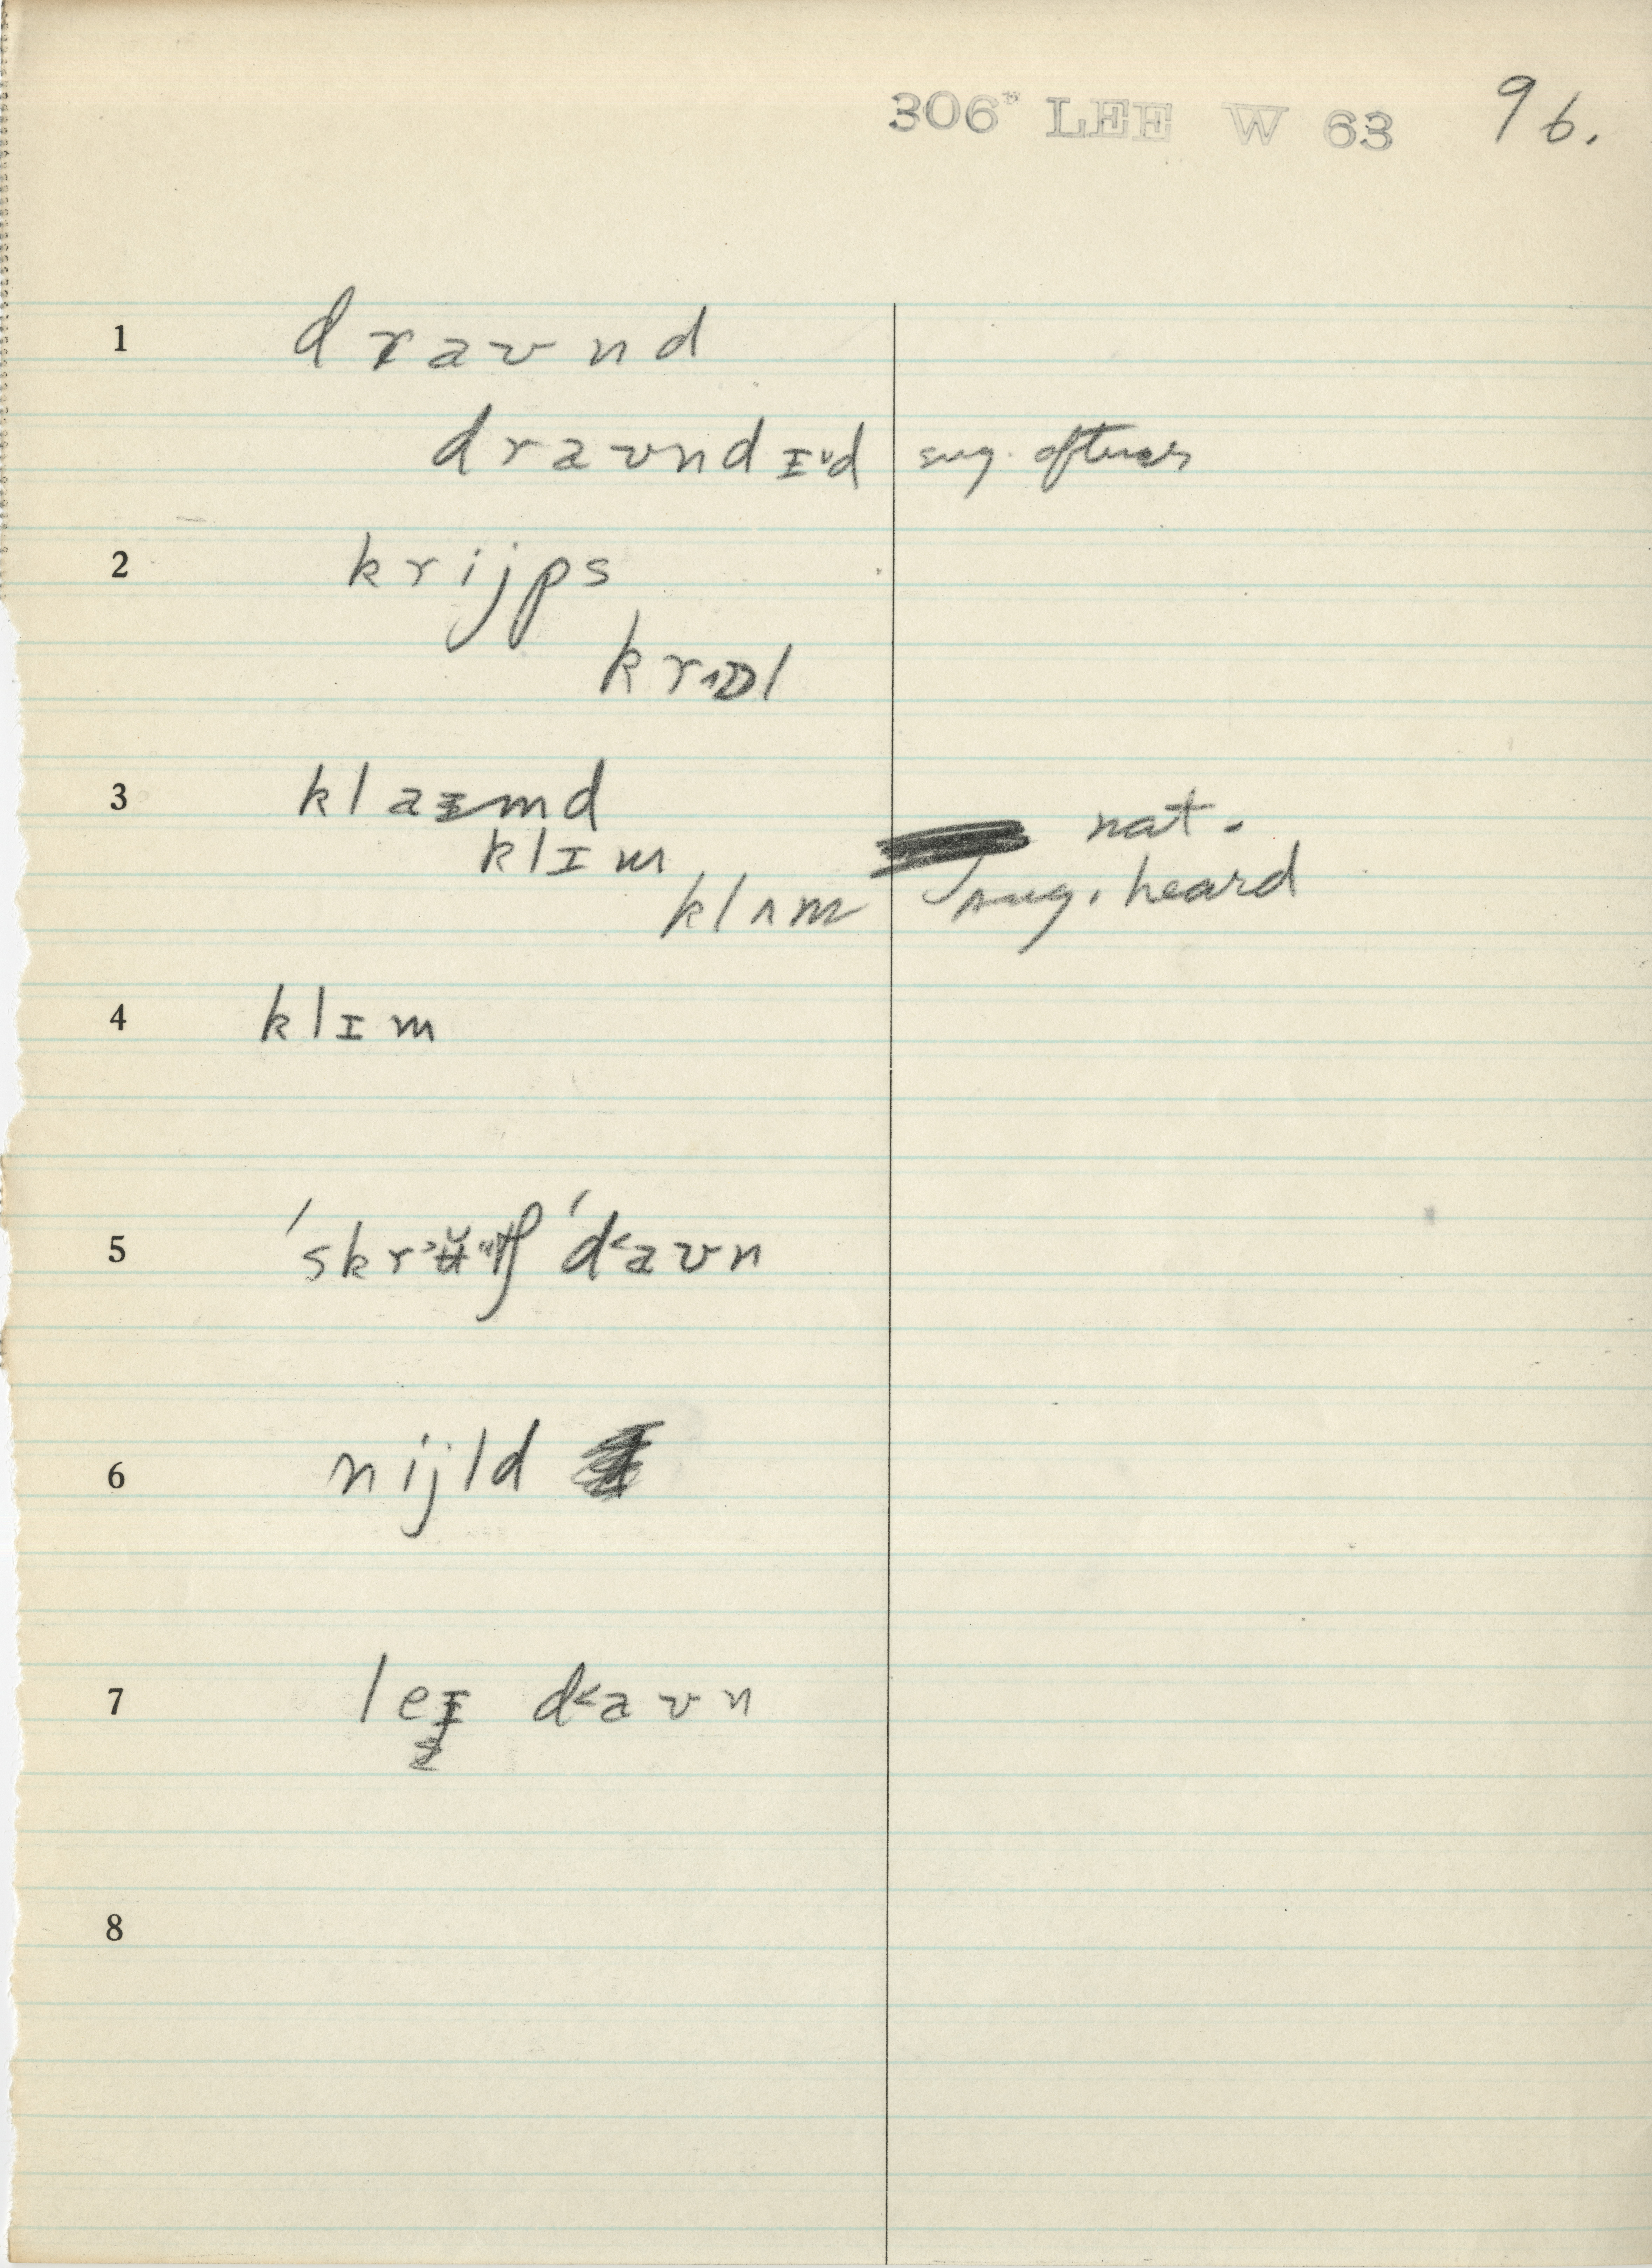 306* LEE W 63 96.
1 draʊnd
draʊndɪᵛd sug. oftener
2 krijps
krɒl
3 klaɪmd
klɪm nat.
klʌm sug. heard
4 klɪm
5 ˈskr˃ʉ̆tʃ ˈd˂aʊn
6 nijld
7 leɪ d˂aʊn
8